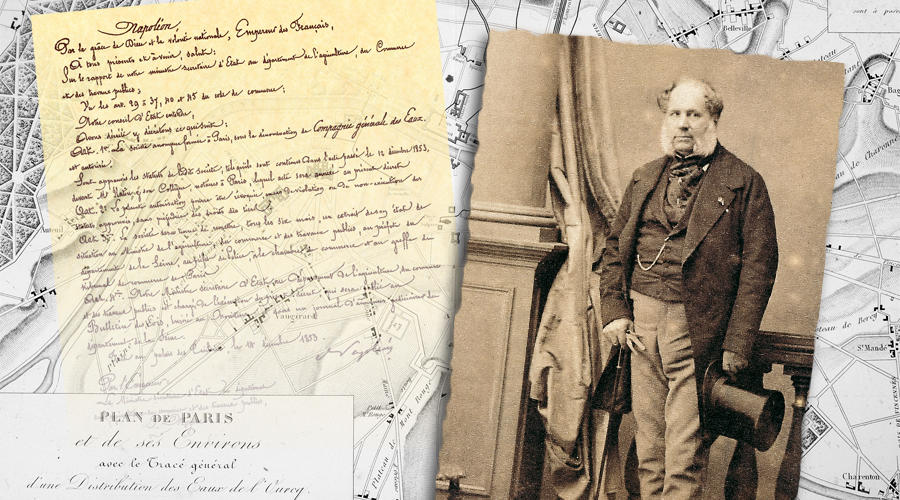 Napoléon,
Par la grâce de Dieu et la volonté nationale, Empereur des Français,
A tous présents et à venir, salut:
Sur le rapport de notre ministre secrétaire d'Etat au département de l'agriculture, du Commerce
et des travaux publics;
Vu les art. 29 à 37, 40 et 45 du code de commerce;
Notre conseil d'Etat entendu,
Avons décrété et décrétons ce qui suit:
Art. 1er. La société anonyme formée à Paris, sous la dénomination de Compagnie générale des Eaux,
est autorisée.
Sont approuvés les statuts de ladite société, tels qu'ils sont contenus dans l'acte passé le 10 décembre 1853,
devant Me et son Collègue, notaires à Paris, lequel acte sera annexé au présent décret.
Art. 2. La présente autorisation pourra être révoquée en cas de violation ou de non-exécution des
statuts approuvés, sans préjudice des droits des tiers.
Art. 3. La société sera tenue de remettre, tous les six mois, un extrait de son état de
situation au Ministre de l'agriculture, du commerce et des travaux publics, au préfet du
département de la Seine, au préfet de police, à la chambre de commerce et au greffe du
tribunal de commerce de Paris.
Art. 4. Notre Ministre Secrétaire d'Etat au Département de l'agriculture du commerce
et des travaux publics est chargé de l'exécution du présent décret, qui sera publié au
Bulletin des lois, inséré au Moniteur et dans un journal d'annonces judiciaires du
département de la Seine.
Fait au palais des Tuileries, le 14 décembre 1853.
Napoléon
Par l'Empereur
Le Ministre Secrétaire d'Etat
PLAN DE PARIS
et de ses Environs
avec le Tracé général
d'une Distribution des Eaux de l'Ourcq.
Auteuil
Vaugirard
Plateau de Mont Rouge
Belleville
Charonne
Plateau de Bercy
St. Mandé
VINCENNES
Charenton